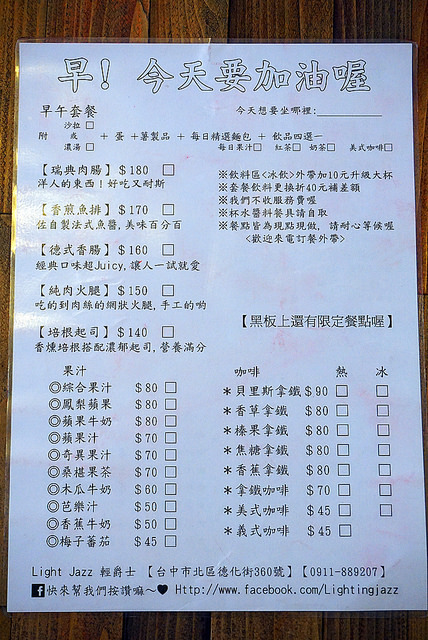 早! 今天要加油喔
早午套餐
今天想要坐哪裡:
沙拉 □
附 或 + 蛋 +薯製品 + 每日精選麵包 + 飲品四選一
濃湯 □
每日果汁□ 紅茶□ 奶茶□ 美式咖啡□
【瑞典肉腸】$180 □
洋人的東西!好吃又耐斯
【香煎魚排】$170 □
佐自製法式魚醬,美味百分百
【德式香腸】$160 □
經典口味超Juicy,讓人一試就愛
【純肉火腿】$150 □
吃的到肉絲的網狀火腿,手工的喲
【培根起司】$140 □
香燻培根搭配濃郁起司,營養滿分
※飲料區<冰飲>外帶加10元升級大杯
※套餐飲料更換折40元補差額
※我們不收服務費喔
※杯水醬料餐具請自取
※餐點皆為現點現做, 請耐心等候喔
<歡迎來電訂餐外帶>
【黑板上還有限定餐點喔】
果汁
◎綜合果汁 $80 □
◎鳳梨蘋果 $80 □
◎蘋果牛奶 $80 □
◎蘋果汁 $70 □
◎奇異果汁 $70 □
◎桑椹果茶 $70 □
◎木瓜牛奶 $60 □
◎芭樂汁 $50 □
◎香蕉牛奶 $50 □
◎梅子蕃茄 $45 □
咖啡 熱 冰
*貝里斯拿鐵 $90 □ □
*香草拿鐵 $80 □ □
*榛果拿鐵 $80 □ □
*焦糖拿鐵 $80 □ □
*香蕉拿鐵 $80 □ □
*拿鐵咖啡 $70 □ □
*美式咖啡 $45 □ □
*義式咖啡 $45 □
Light Jazz 輕爵士 【台中市北區德化街360號】【0911-889207】
f快來幫我們按讚嘛~♥ Http://www.facebook.com/Lightingjazz